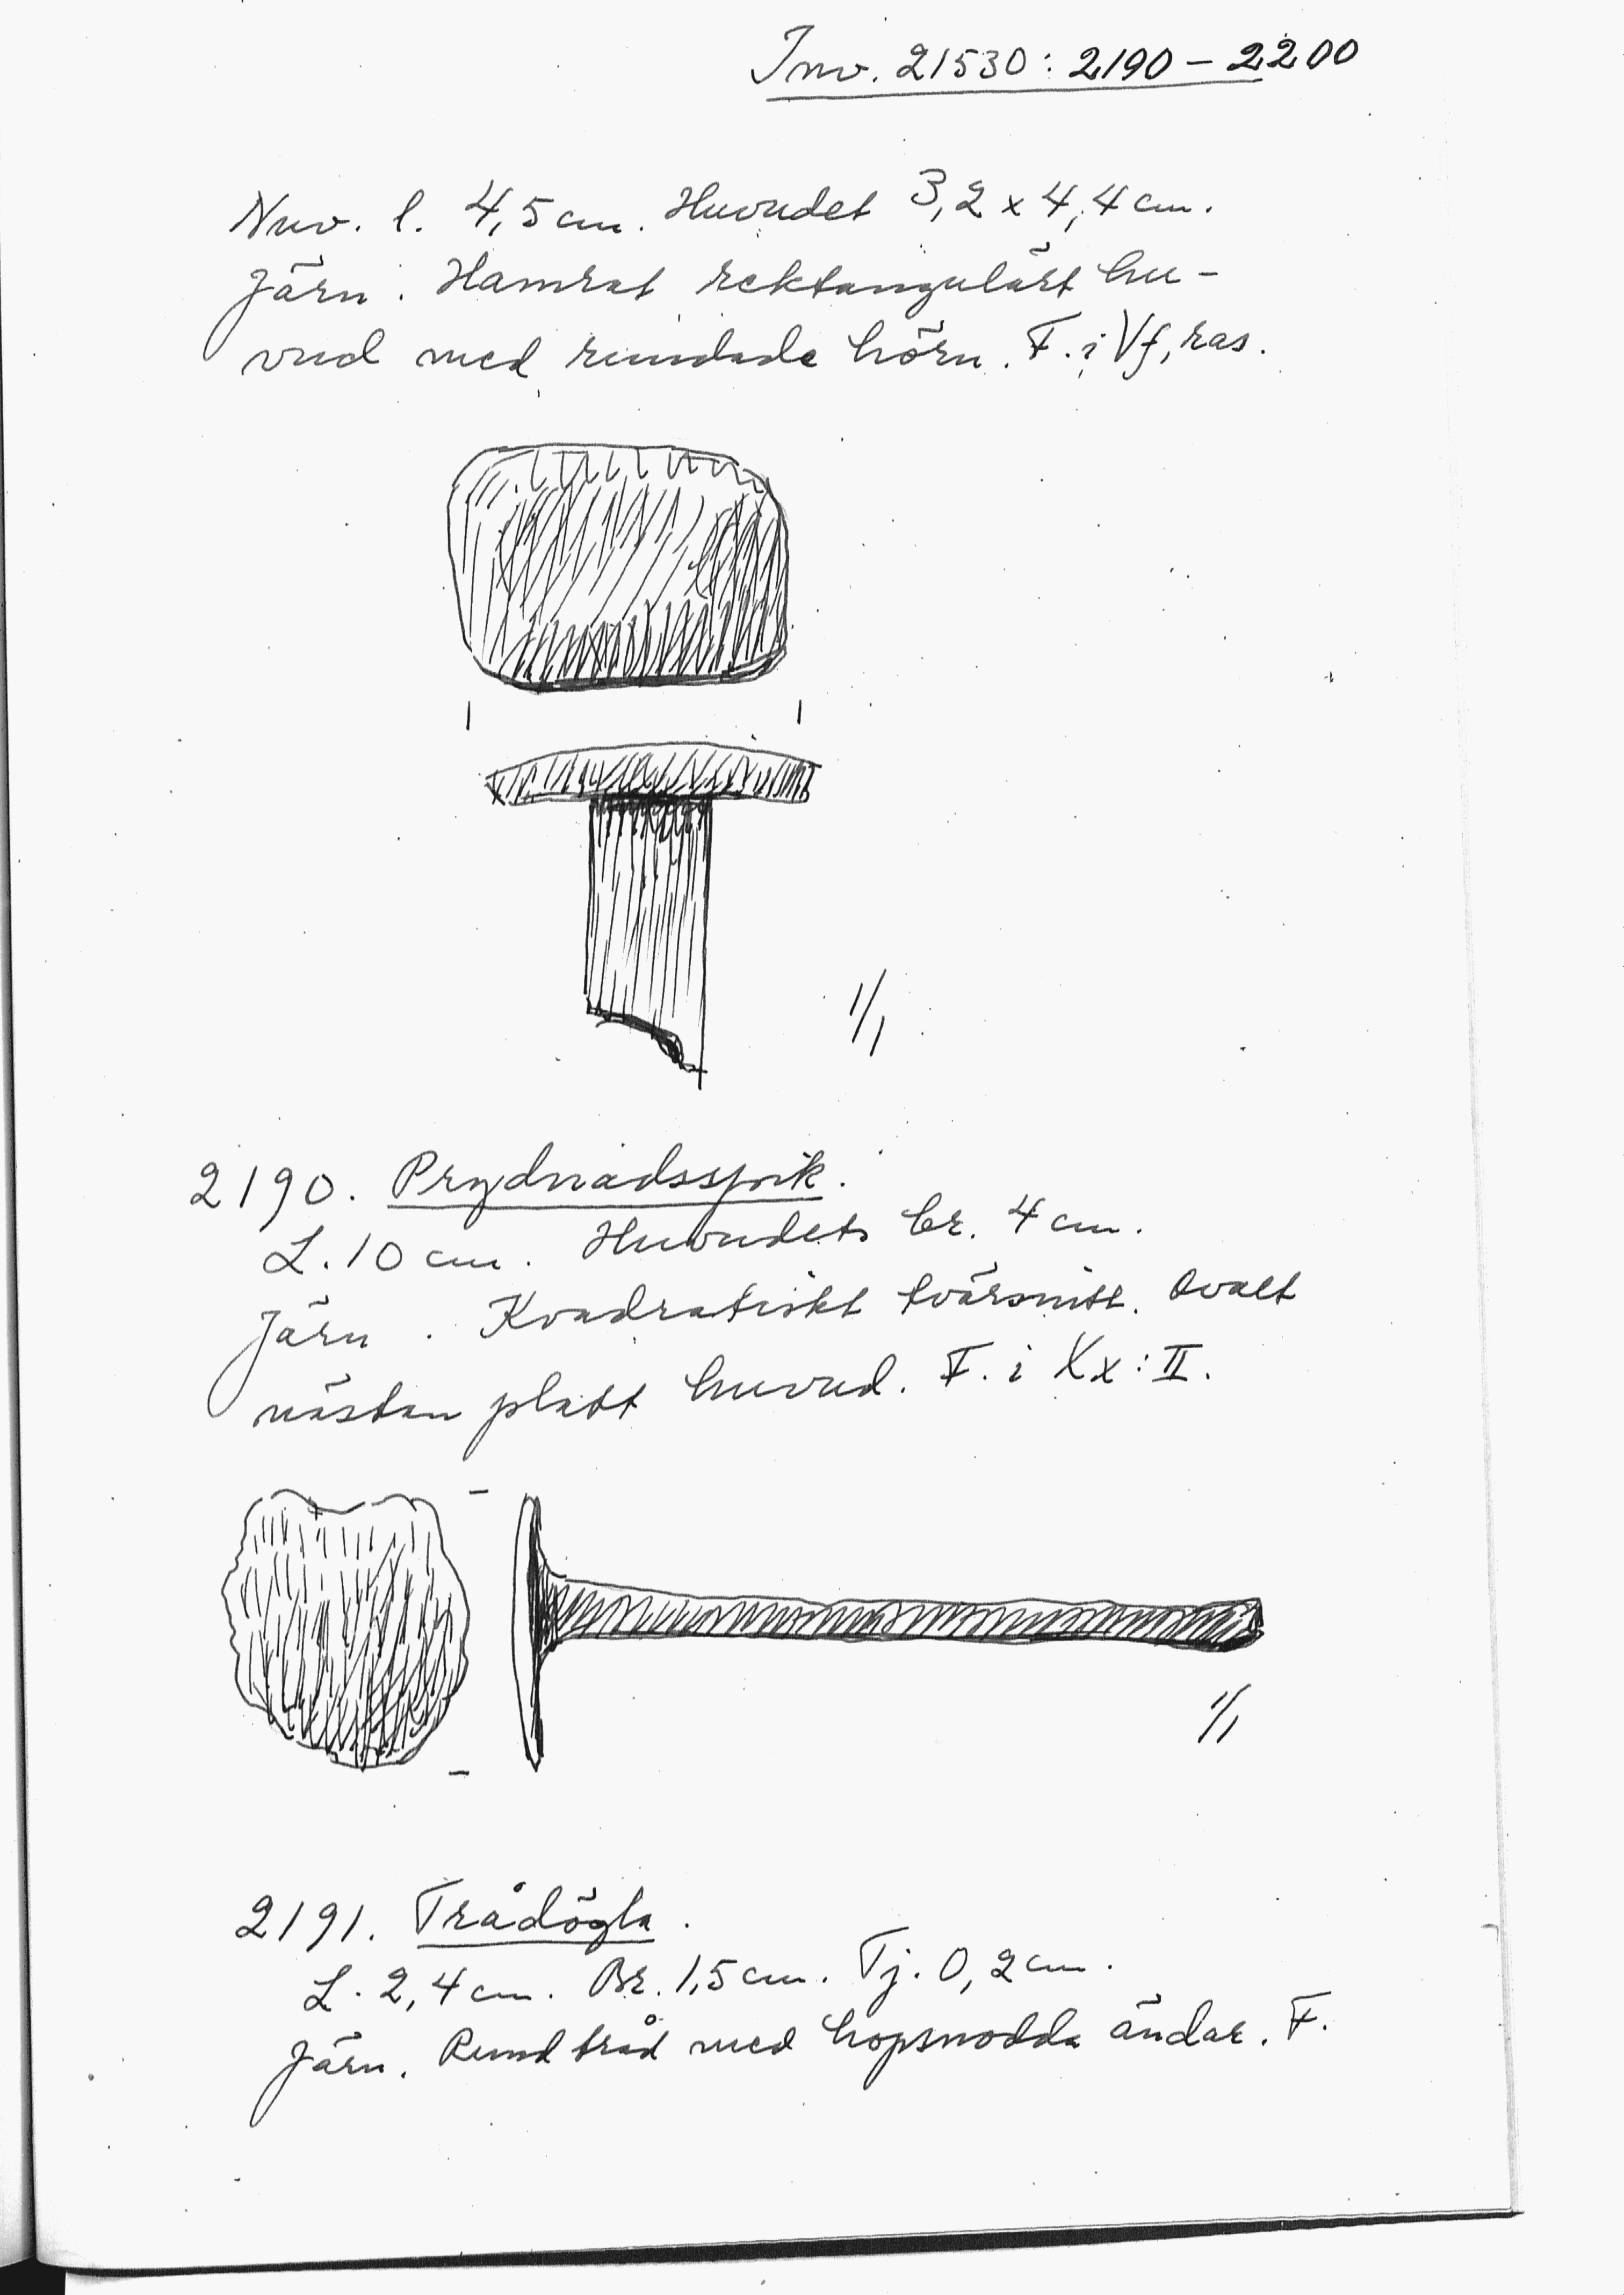 Inv. 21530: 2190 – 2200
Nuv. l. 4,5 cm. Huvudet 3,2 x 4,4 cm.
Järn. Hamrat rektangulärt hu-
vud med rundade hörn. F. i Vf, ras.
1/1
2190. Prydnadsspik.
L. 10 cm. Huvudets br. 4 cm.
Järn. Kvadratiskt tvärsnitt. Ovalt
nästan platt huvud. F. i Xx: II.
1/1
2191. Trådögla.
L. 2,4 cm. Br. 1,5 cm. Tj. 0,2 cm.
Järn. Rund tråd med hopsnodda ändar. F.